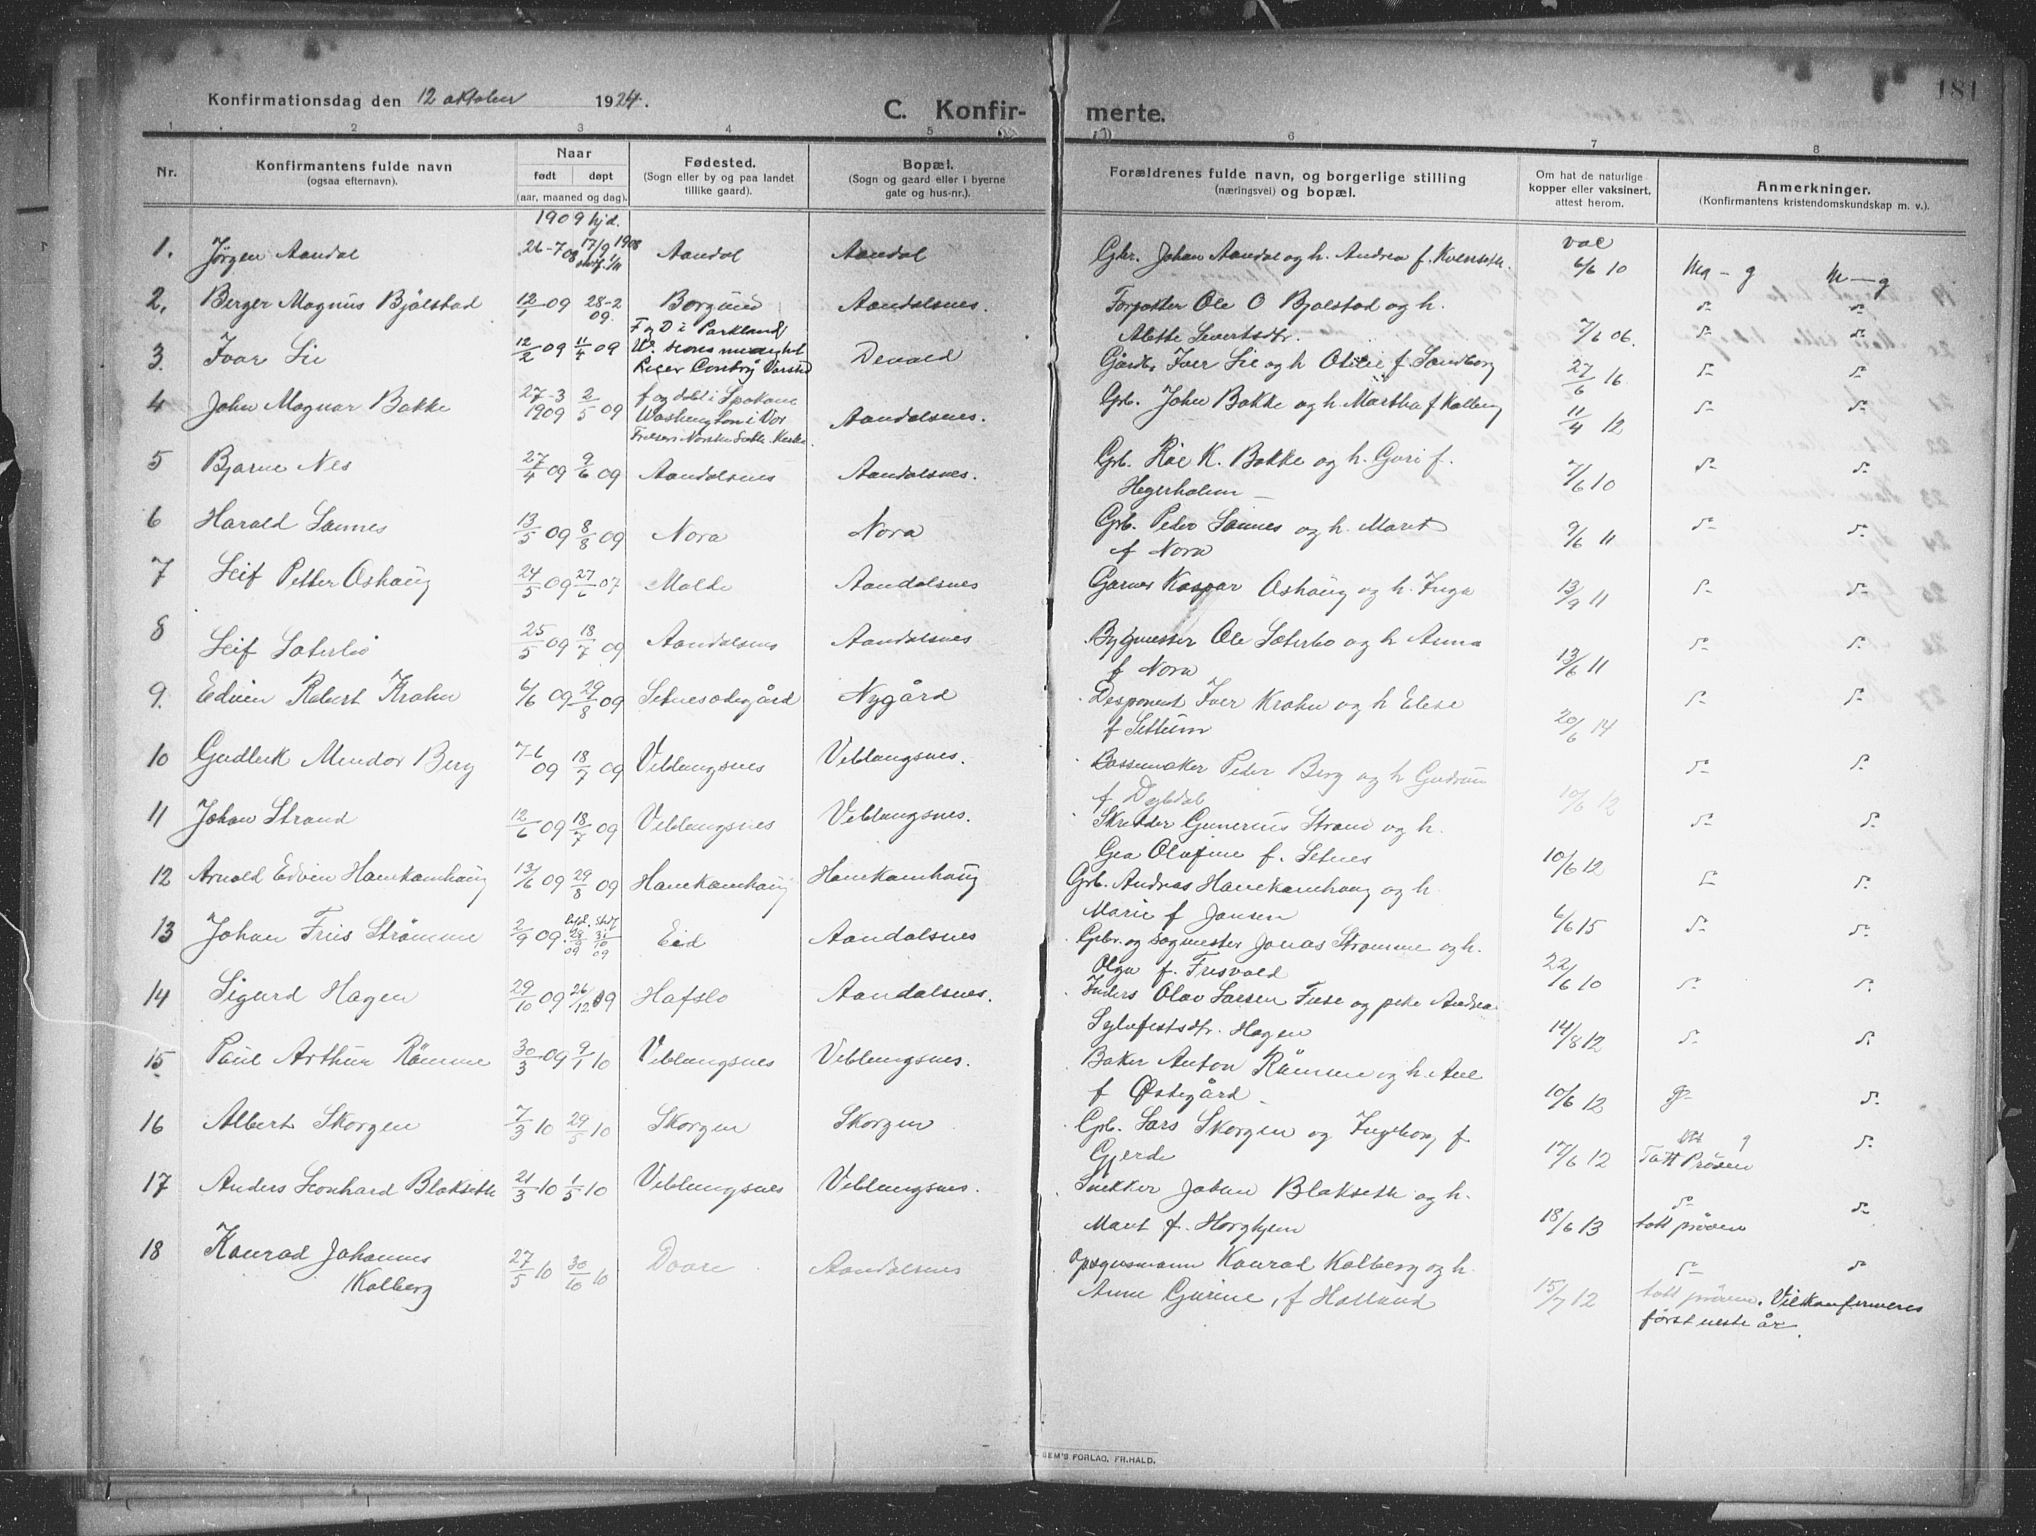 181
Konfirmationsdag den 12 oktober 1924.
C. Konfirmerte.
1 2 3 4 5 6 7 8
Nr.
Konfirmantens fulde navn
(ogsaa efternavn).
Naar
født døpt
(aar, maaned og dag).
Fødested.
(Sogn eller by og paa landet
tillike gaard).
Bopæl.
(Sogn og gaard eller i byerne
gate og hus-nr.).
Forældrenes fulde navn, og borgerlige stilling
(næringsvei) og bopæl.
Om hat de naturlige
kopper eller vaksinert,
attest herom.
Anmerkninger.
(Konfirmantens kristendomskundskap m. v.).
1909 hjd.
1. Jørgen Aandal 26-7 08 17/9 1908 Aandal Aandal Gbr. Johan Aandal og h. Andrea f. Kvenseth. vac 6/6 10 Mg - g M - g
2. Berger Magnus Bjølstad 12/1 09 28-2 09. Borgund Aandalsnes. Forpakter Ole O Bjølstad og h.
Alette Sivertsdtr. 7/6 06.
3. Ivar Lie 12/2 09 11/4 09 F og D i Parkland Devold Gårdbr Iver Lie og h Otilie f. Sandborg 27/6 16
4 John Magnar Bakke 27-3 1909 2/5 09 f og døbt i Spokane
Washington i Vor
Frelsers Norske Luth. Kirke. Aandalsnes. Grb. John Bakke og h. Martha f Kalberg 11/4 12
5 Bjarne Nes 27/4 09 9/6 09 Aandalsnes Aandalsnes. Grb. Roe K. Bakke og h. Guri f.
Hegerholm 7/6 10
6 Harald Sannes 13/5 09 8/8 09 Nora Nora Grb. Peder Sannes og h. Marit
f Nora 9/6 11
7 Leif Petter Oshaug 24/5 09 27/6 07 Molde Aandalsnes Garver Kaspar Oshaug og h. Inga 13/9 11
8 Leif Sæterbø 25/5 09 18/7 09 Aandalsnes Aandalsnes Bygmester Ole Sæterbø og h Anna
f Nora 13/6 11
9. Edvin Robert Krohn 6/6 09 29/8 09 Setnesødegård Nygård Disponent Iver Krohn og h Elise
f Sættem 20/6 14
10 Gudleik Mendor Berg 7-6 09 18/7 09 Veblungsnes Veblungsnes. Bøssemaker Peder Berg og h Gudrun
f Døldal 10/6 12
11 Johan Strand 12/6 09 18/7 09 Veblungsnes Veblungsnes. Skredder Gunerius Strand og h.
Gea Olufine f. Setnes 10/6 12
12 Arnold Edvin Hanekamhaug 13/6 09 29/8 09 Hanekamhaug Hanekamhaug Grb. Andreas Hanekamhaug og h.
Marie f Jansen 6/6 15
13 Johan Friis Strømme 2/9 09. Eid Aandalsnes Gbr. og sagmester Jonas Strømme og h.
Olga f. Frisvold 22/6 10
14 Sigurd Hagen 29/10 09 26/12 09 Hafslo Aandalsnes. Inders Olav Larsen Fuse og pike Andrea
Sylvfestsdtr. Hagen 14/8 12
15. Paul Arthur Rømme 30/3 09 9/1 10 Veblungsnes Veblungsnes. Baker Anton Rømme og h. Ane
f Østigård 10/6 12 g-
16 Albert Skorgen 7/3 10 29/5 10 Skorgen Skorgen Grb. Lars Skorgen og Ingeborg f.
Gjerde 17/6 12 Tatt Prøven
17 Anders Leonhard Blakseth 21/3 10 1/5 10 Veblungsnes Veblungsnes. Snekker Johan Blakseth og h.
Marit f. Horghjem 18/6 13 tatt prøven
18 Konrad Johannes
Kalberg 27/5 10 30/10 10 Doare Aandalsnes Opsynsmann Konrad Kalberg og h.
Anne Gurine, f Halland 15/7 12 tatt prøven. Vil konfirmeres
først neste år.
SEM'S FORLAG, FR.HALD.